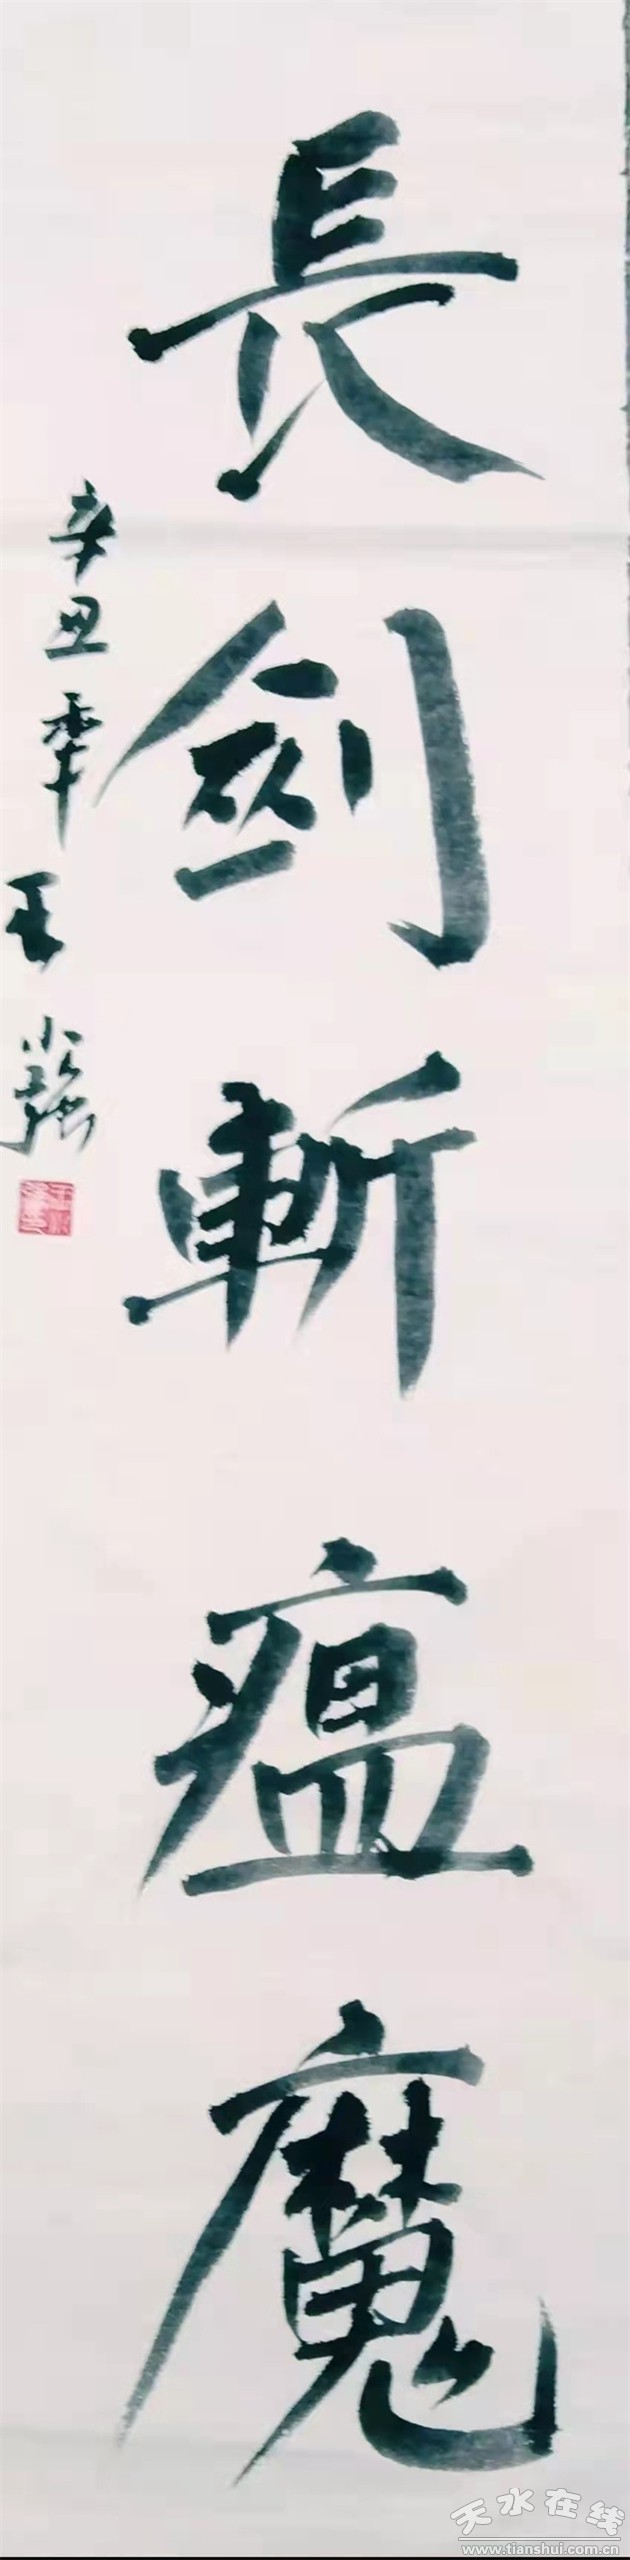 長劍斬瘟魔
辛丑年王小強
天水在线
www.tianshui.com.cn